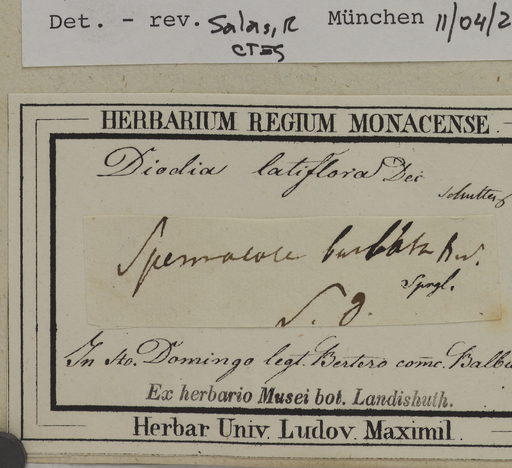 Det. - rev. Salas, R München 11/04/2
CTES
HERBARIUM REGIUM MONACENSE.
Diodia latiflora Dei
Spermacoce barbata
Sprgl.
S. D.
In Sto. Domingo legt. Bertero comc. Balb
Ex herbario Musei bot. Landishuth.
Herbar Univ. Ludov. Maximil.